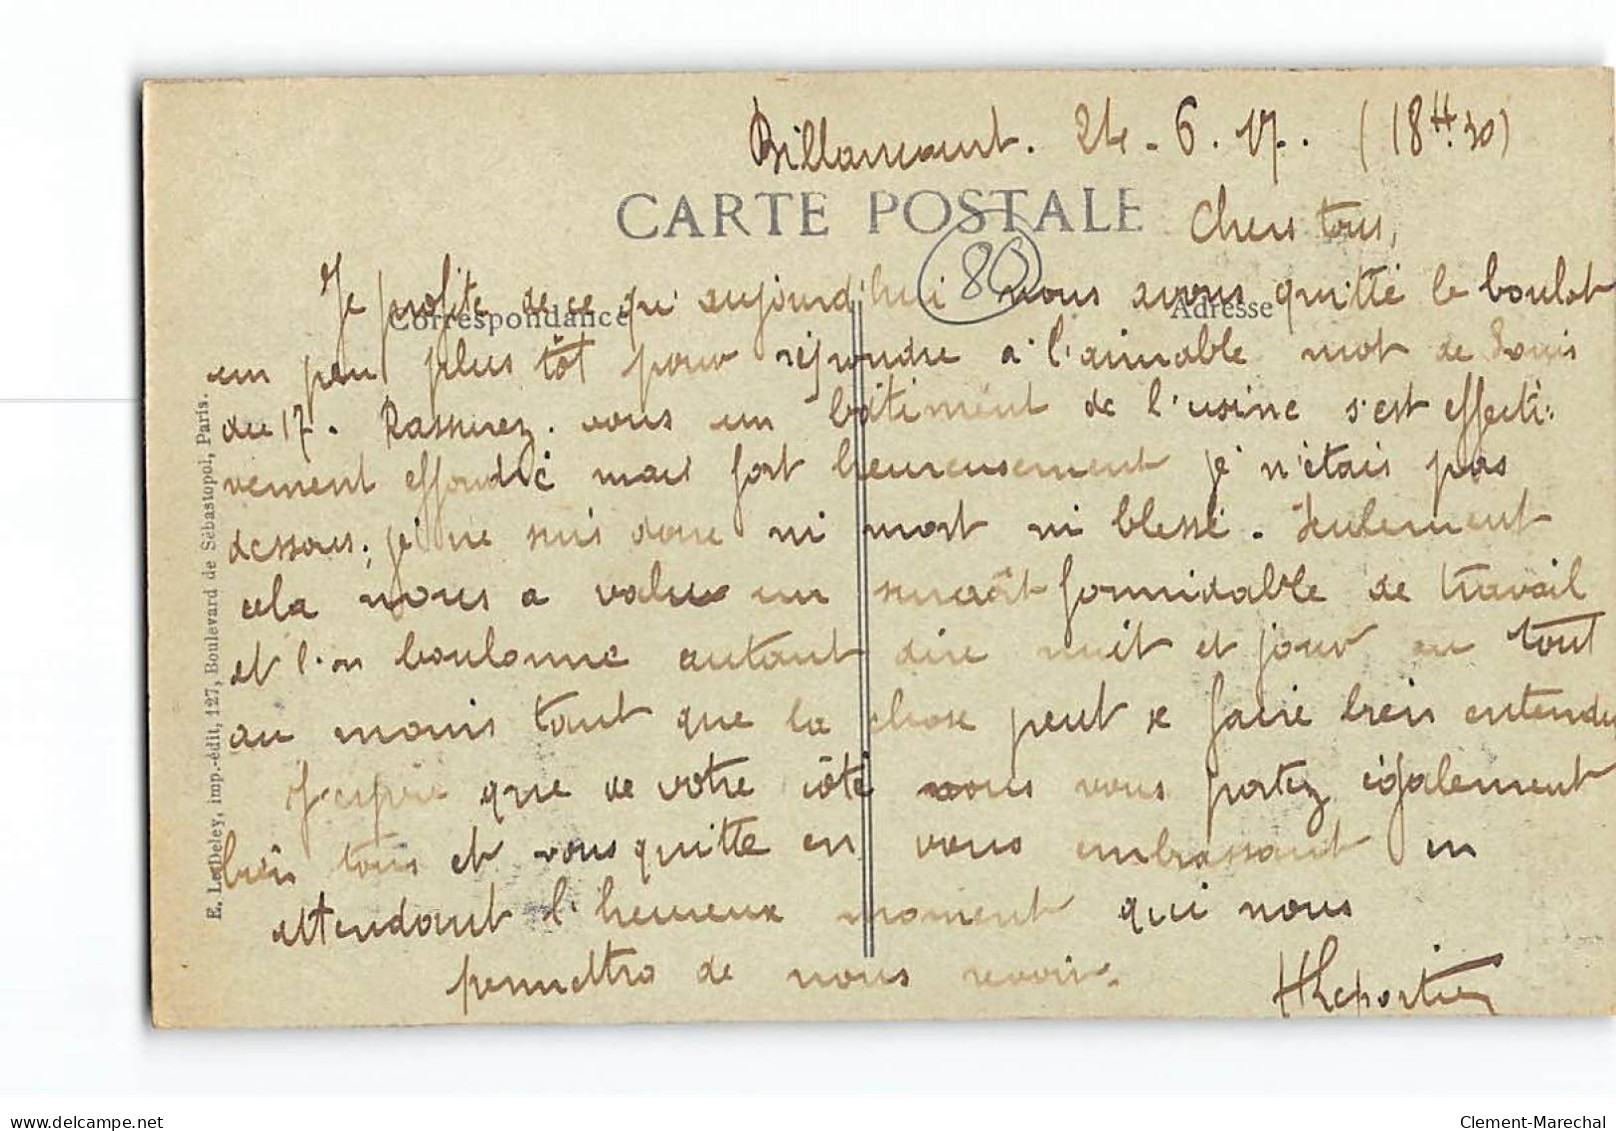 Billancourt. 24-6.17. (18H.30)
CARTE POSTALE
Chers tous,
80
Je profite de ce qu'aujourd'hui nous avons quitté le boulot
Correspondance
Adresse
un peu plus tôt pour répondre à l'aimable mot de Louis
du 17. Rassurez-vous un bâtiment de l'usine s'est effecti-
vement effondré mais fort heureusement je n'étais pas
dessous, je ne suis donc ni mort ni blessé. Seulement
cela nous a valu un surcroît formidable de travail
et l'on boulonne autant dire nuit et jour ou tout
au moins tant que la chose peut se faire bien entendu
J'espère que de votre côté vous vous portez également
bien tous et vous quitte en vous embrassant en
attendant l'heureux moment qui nous
permettra de nous revoir.
HLeportier
E. Le Deley, imp.-édit, 127, Boulevard de Sébastopol, Paris.
delcampe.net
Clement-Marechal